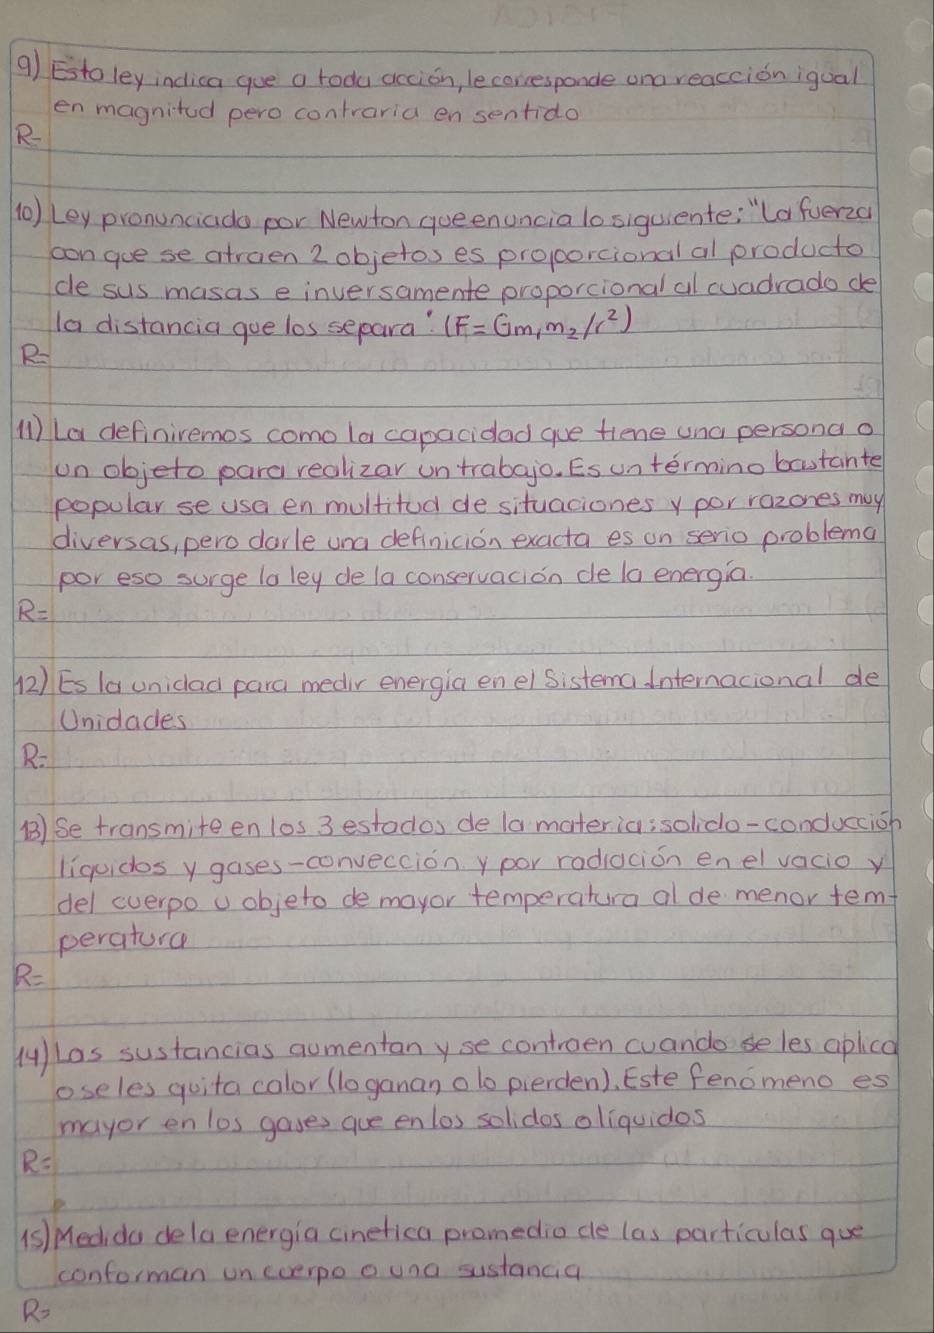 9) Esta ley indica que a toda acción, le corresponde una reacción igual
en magnitud pero contraria en sentido
R=
10) Ley pronunciada por Newton que enuncia lo siguiente: "La fuerza
con que se atraen 2 objetos es proporcional al producto
de sus masas e inversamente proporcional al cuadrado de
la distancia que los separa". (F=Gm₁m₂/r²)
R=
11) La definiremos como la capacidad que tiene una persona o
un objeto para realizar un trabajo. Es un término bastante
popular se usa en multitud de situaciones y por razones muy
diversas, pero darle una definición exacta es un serio problema
por eso surge la ley de la conservación de la energía.
R=
12) Es la unidad para medir energía en el Sistema Internacional de
Unidades
R=
13) Se transmite en los 3 estados de la materia: solido-conducción
líquidos y gases-convección y por radiación en el vacio y
del cuerpo u objeto de mayor temperatura al de menor tem-
peratura
R=
14) Las sustancias aumentan y se contraen cuando se les aplica
o se les quita calor (lo ganan o lo pierden). Este fenómeno es
mayor en los gases que en los solidos o líquidos
R=
15) Medida de la energía cinetica promedio de las partículas que
conforman un cuerpo o una sustancia
R=